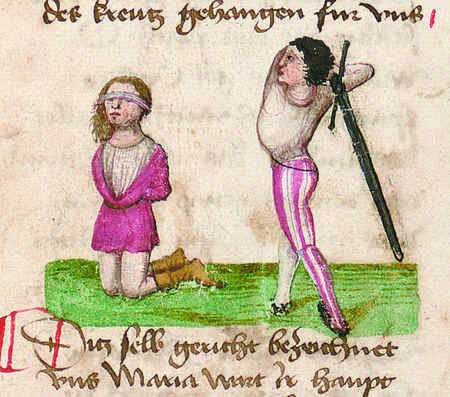 des kreutz gehangen fur vns
Ditz selb gericht bezeichnet
vns Maria wart ir haupt